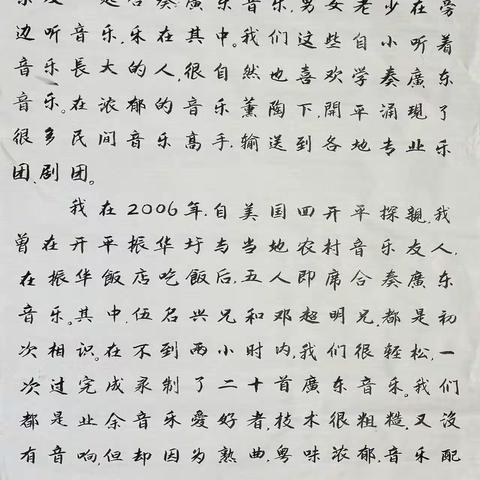 奏廣东音乐,男女老少在旁
边听音乐,乐在其中。我们这些自小听着
音乐長大的人,很自然也喜欢学奏廣东
音乐。在浓郁的音乐薰陶下,開平涌現了
很多民间音乐高手,输送到各地专业乐
团、剧团。
我在2006年,自美国回开平探親,我
曾在开平振华圩与当地农村音乐友人,
在振华飯店吃飯后,五人即席合奏廣东
音乐。其中,伍名兴兄和邓超明兄,都是初
次相识。在不到两小时内,我们很轻松,一
次过完成录制了二十首廣东音乐。我们
都是业余音乐愛好者,技术很粗糙,又沒
有音响,但却因为熟曲,粤味浓郁,音乐配